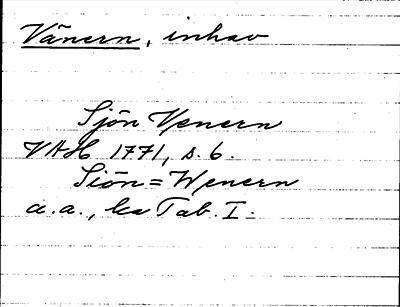 Vänern, inhav
Sjön Venern
VAH 1771, s. 6.
Siön=Wenern
a.a., Tab. I.